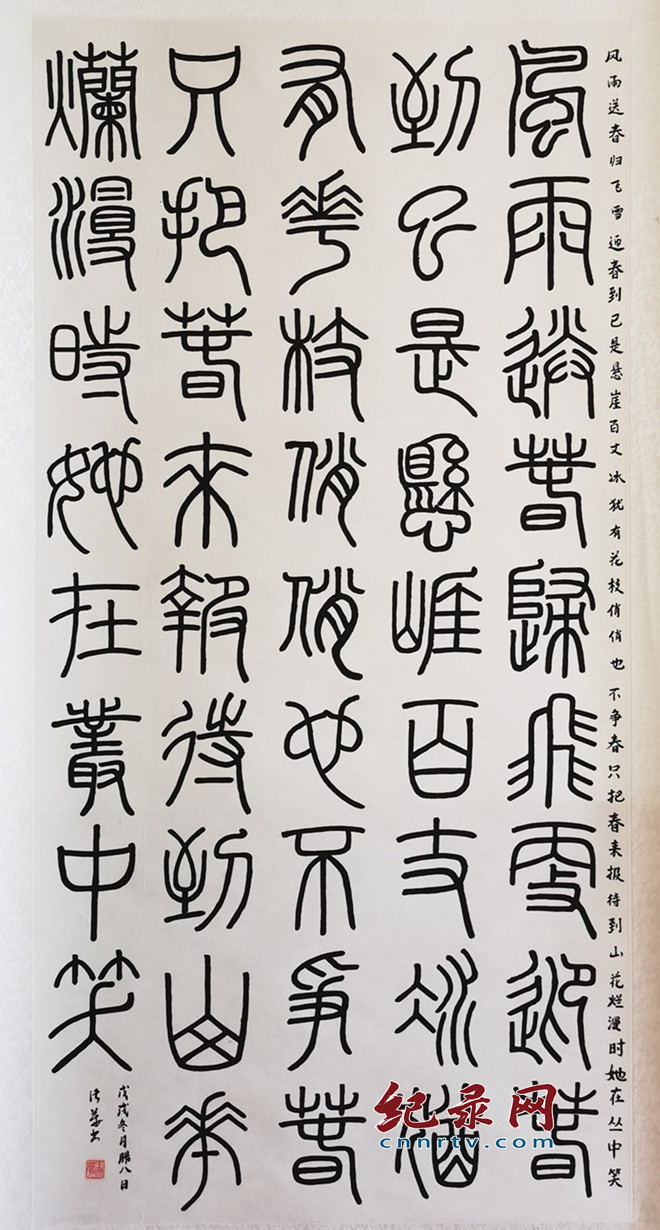 风雨送春归飞雪迎春到已是悬崖百丈冰犹有花枝俏俏也不争春只把春来报待到山花烂漫时她在丛中笑
風雨送春歸飛雪迎春
到已是懸崖百丈冰猶
有花枝俏俏也不爭春
只把春來報待到山花
爛漫時她在叢中笑
戊戌冬月腊八日
书
纪录网
cnnrtv.com